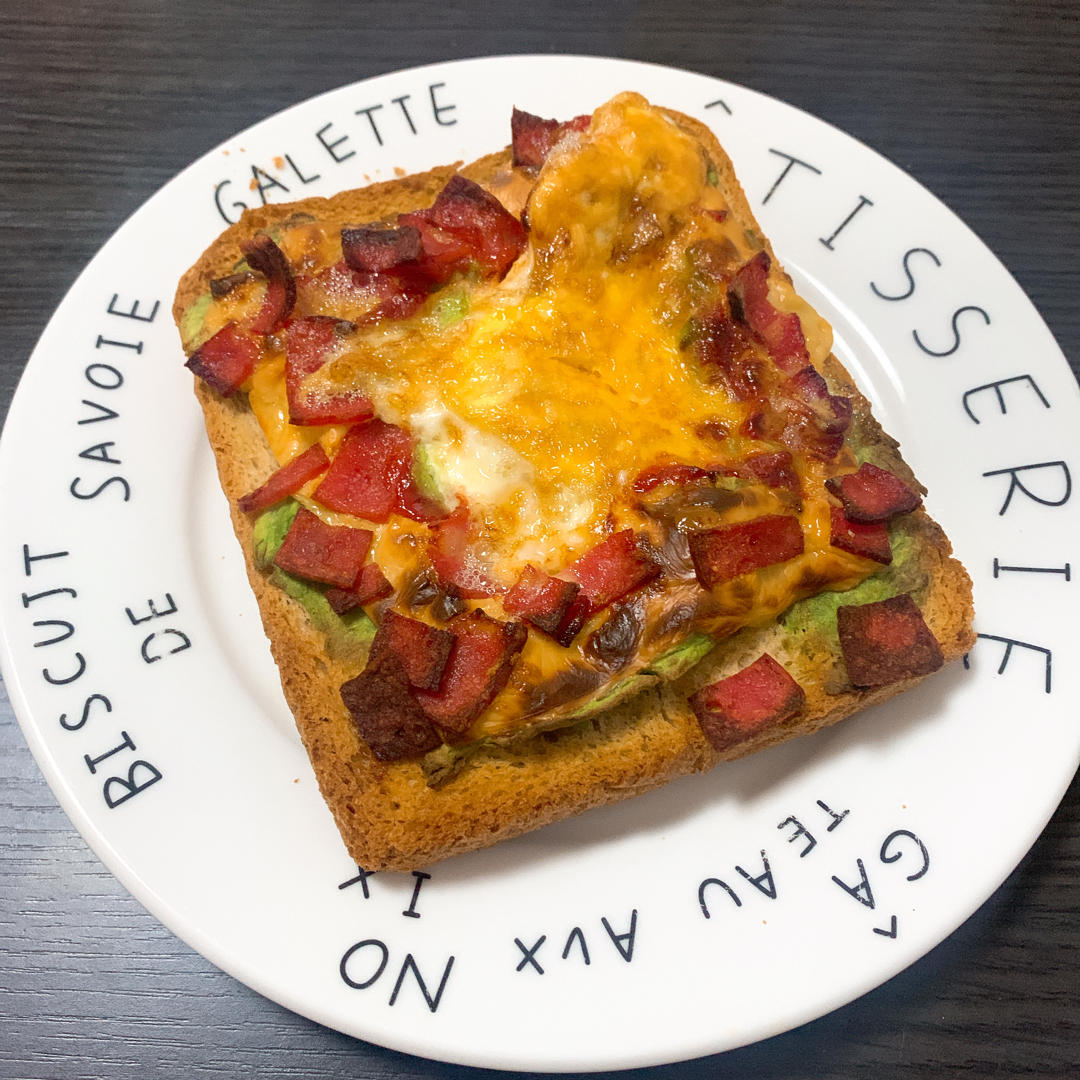 GALETTE
TISSERIE
GÂTEAU AUX
NOIX
BISCUIT
DE
SAVOIE